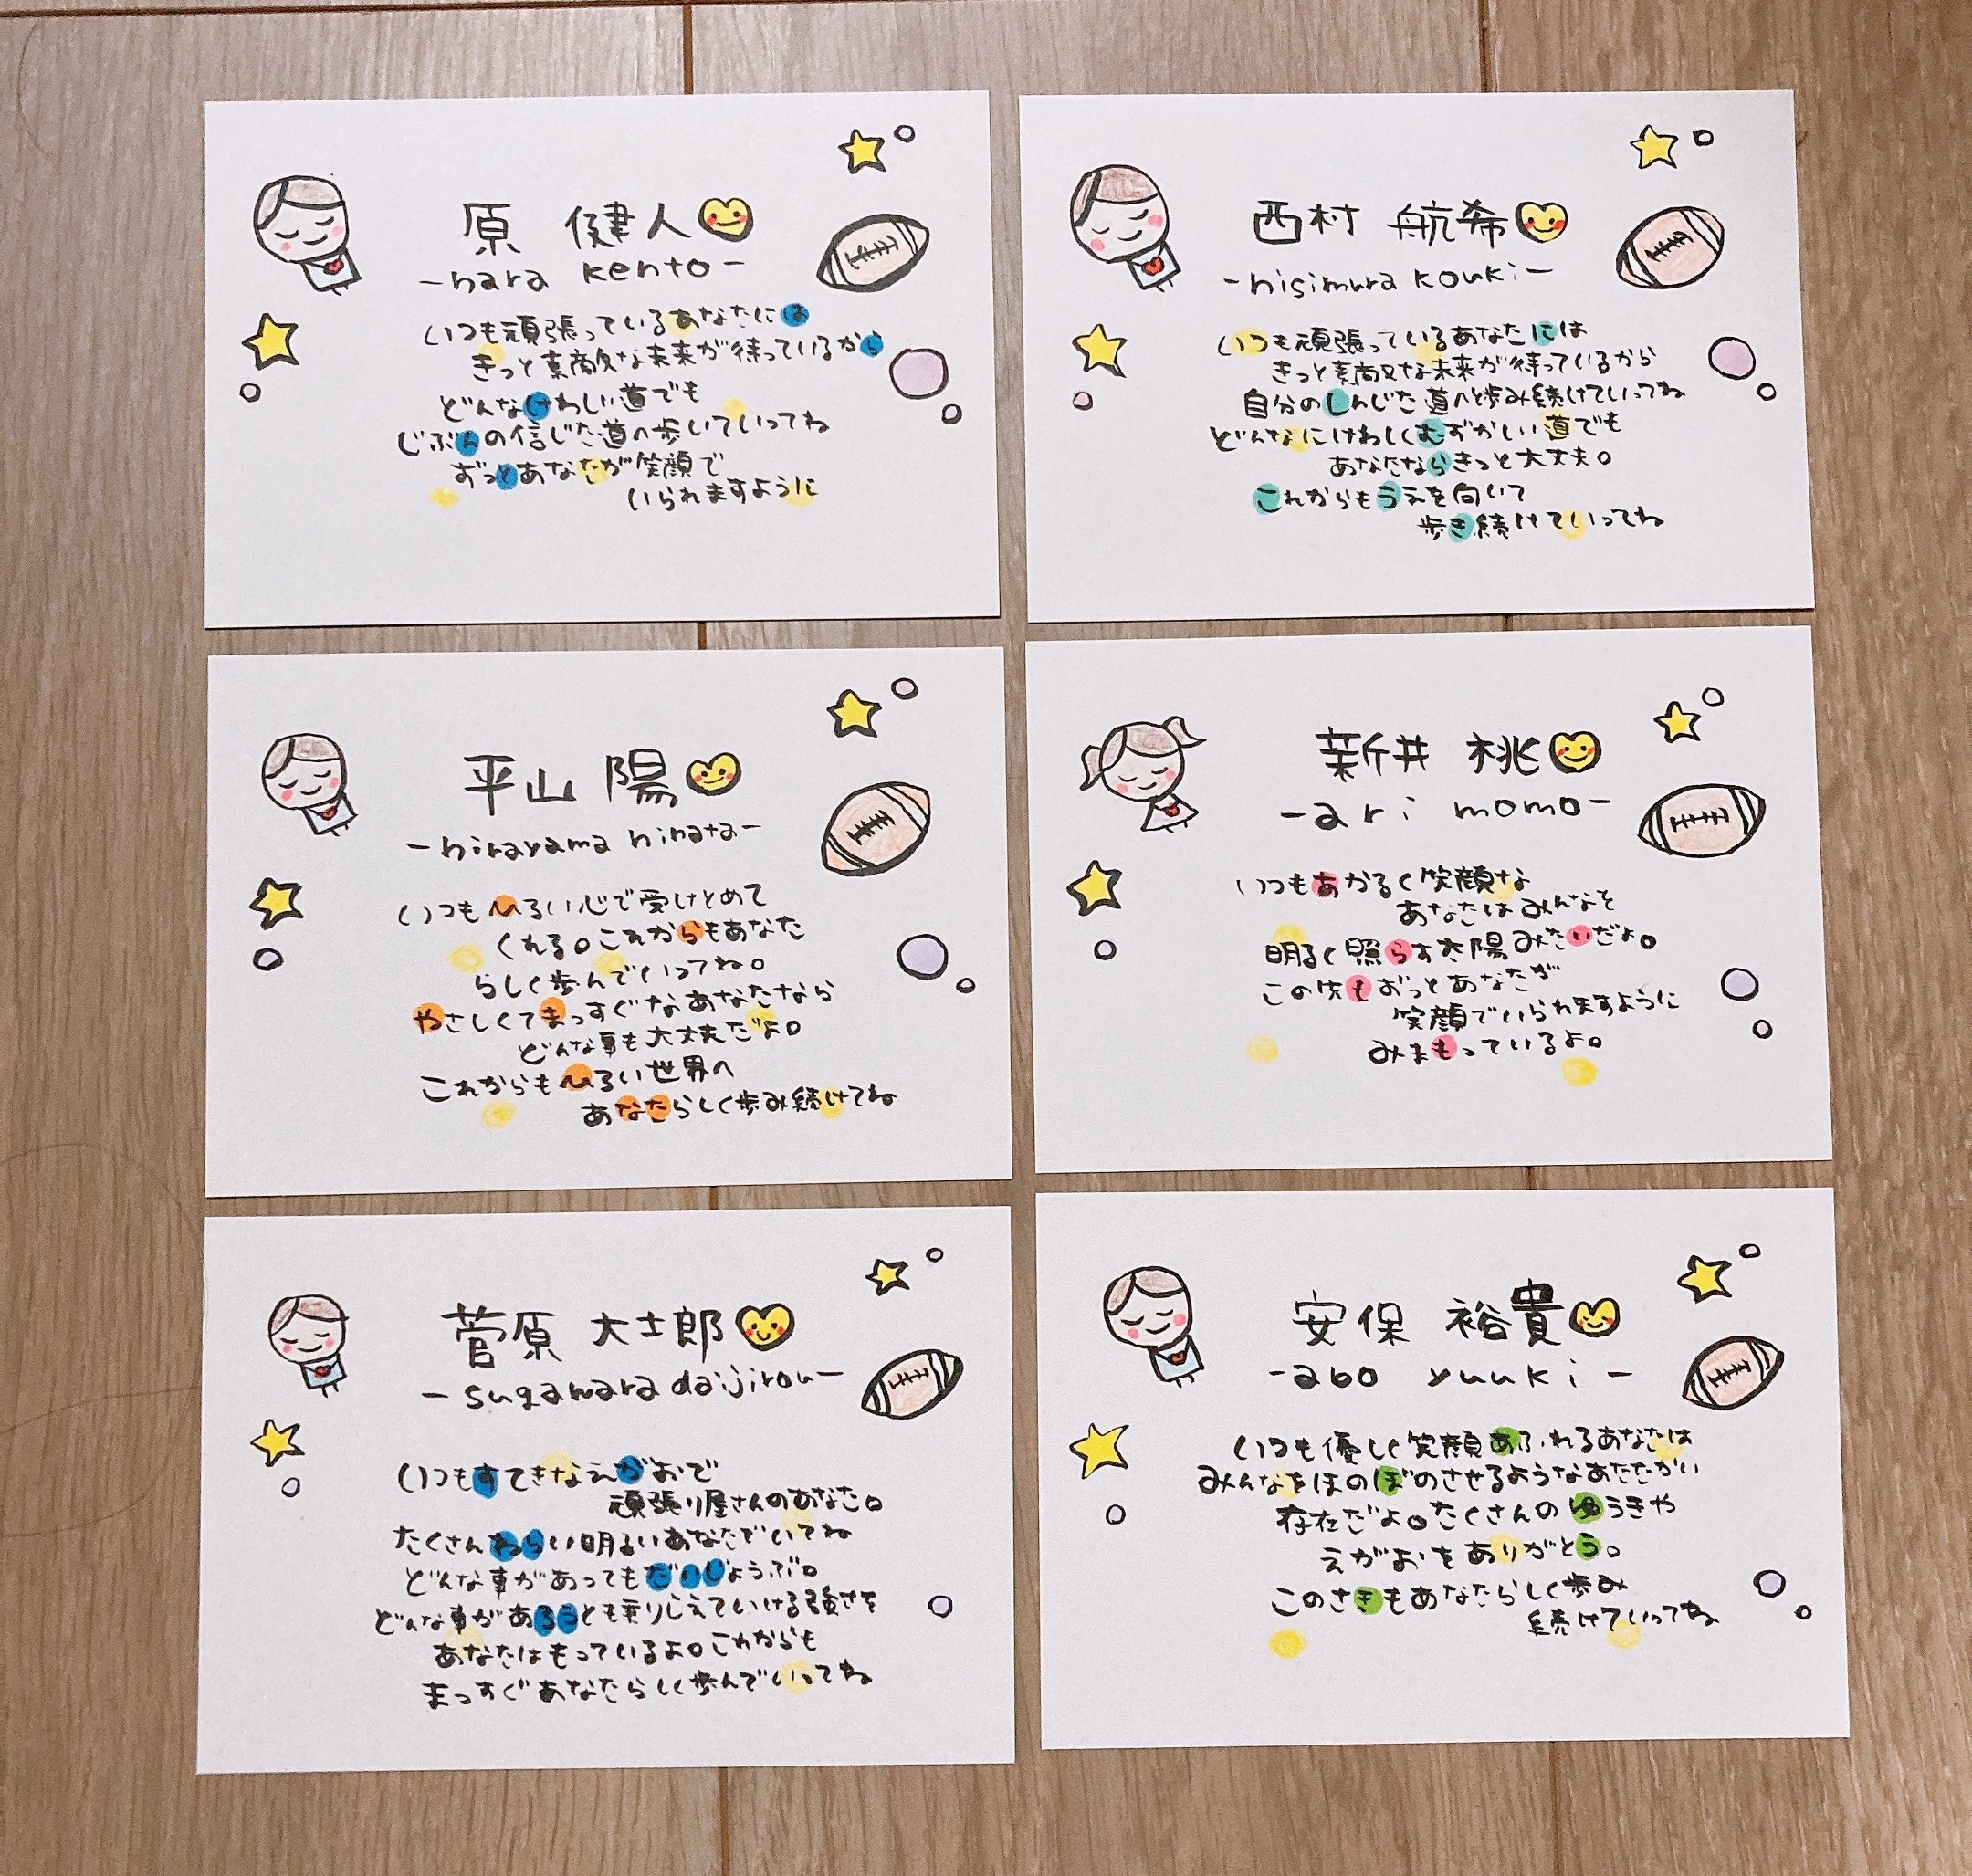 原 健人
-hara kento-
いつも頑張っているあなたには
きっと素敵な未来が待っているから
どんなけわしい道でも
じぶんの信じた道へ歩いていってね
ずっとあなたが笑顔で
いられますように
西村 航希
-nisimura kouki-
いつも頑張っているあなたには
きっと素敵な未来が待っているから
自分のしんじた道へと歩み続けていってね
どんなにけわしくむずかしい道でも
あなたならきっと大丈夫。
これからもうえを向いて
歩き続けていってね
平山 陽
-hirayama hinata-
いつもひろい心で受けとめて
くれる。これからもあなた
らしく歩んでいってね。
やさしくてまっすぐなあなたなら
どんな事も大丈夫だよ。
これからもひろい世界へ
あなたらしく歩み続けてね
新井 桃
-ari momo-
いつもあかるく笑顔な
あなたはみんなを
明るく照らす太陽みたいだよ。
この先もずっとあなたが
笑顔でいられますように
みまもっているよ。
菅原 大士郎
-sugawara daijirou-
いつもすてきなえがおで
頑張り屋さんのあなた。
たくさんわらい明るいあなたでいてね
どんな事があってもだいじょうぶ。
どんな事があろうとも乗りこえていける強さを
あなたはもっているよ。これからも
まっすぐあなたらしく歩んでいってね
安保 裕貴
-abo yuuki-
いつも優しく笑顔あふれるあなたは
みんなをほのぼのさせるようなあたたかい
存在だよ。たくさんのゆうきや
えがおをありがとう。
このさきもあなたらしく歩み
続けていってね